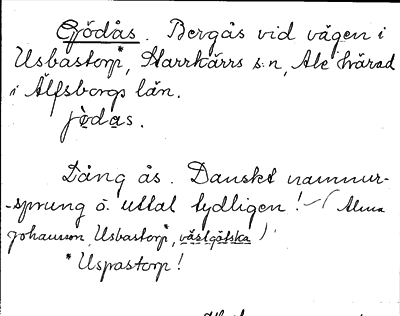 Gjödås. Bergås vid vägen i
Usbastorp*, Starrkärrs s:n, Ale härad
i Älfsborgs län.
jödas.
Lång ås. Danskt namnur-
-sprung o. uttal tydligen! (Alma
Johansson, Usbastorp*, västgötska)
*Uspastorp!